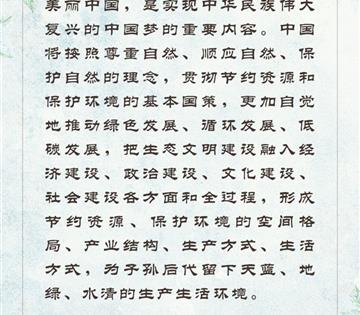 美丽中国，是实现中华民族伟大
复兴的中国梦的重要内容。中国
将按照尊重自然、顺应自然、保
护自然的理念，贯彻节约资源和
保护环境的基本国策，更加自觉
地推动绿色发展、循环发展、低
碳发展，把生态文明建设融入经
济建设、政治建设、文化建设、
社会建设各方面和全过程，形成
节约资源、保护环境的空间格
局、产业结构、生产方式、生活
方式，为子孙后代留下天蓝、地
绿、水清的生产生活环境。